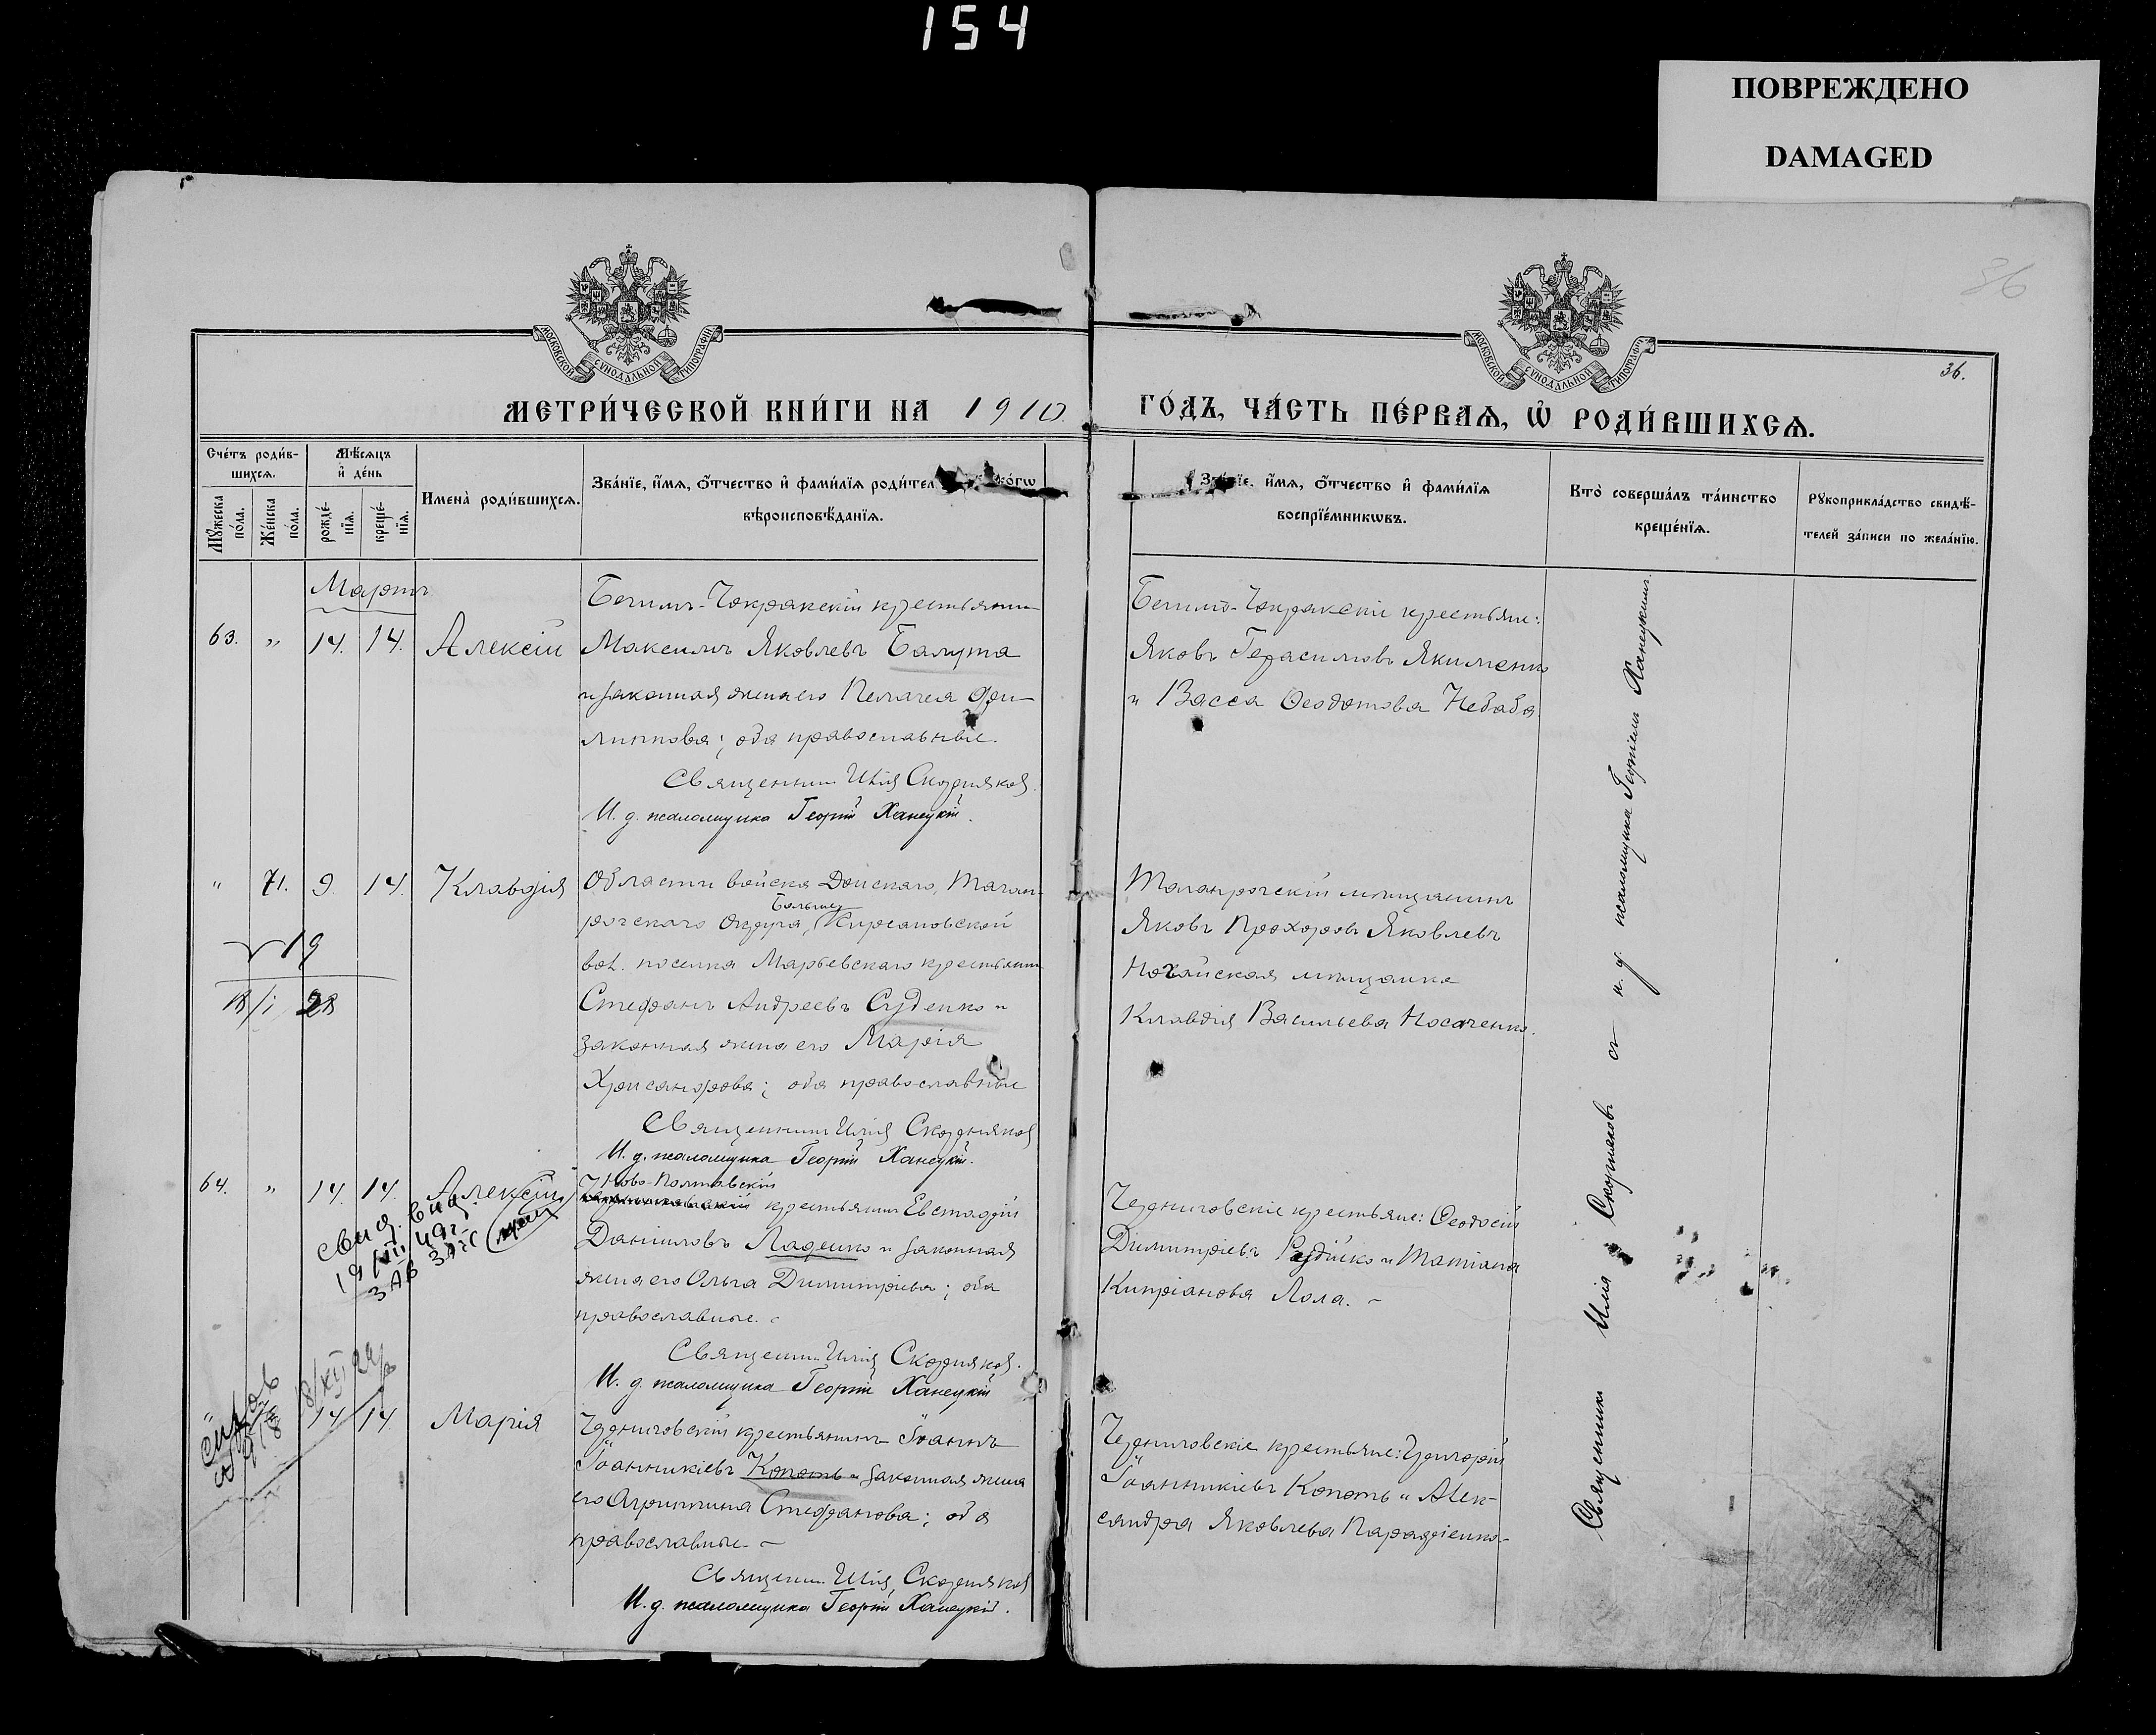 154
ПОВРЕЖДЕНО
DAMAGED
36
36.
МОСКОВСКОЙ СУНОДАЛЬНОЙ ТИПОГРАФІИ
МОСКОВСКОЙ СУНОДАЛЬНОЙ ТИПОГРАФІИ
МЕТРИ́ЧЕСКОЙ КНИ́ГИ НА 1910.
ГО́ДЪ, ЧА́СТЬ ПЕ́РВАѦ, Ѡ҆ РОДИ́ВШИХСѦ.
Сче́тъ роди́в-
шихсѧ.
Мꙋжеска по́ла.
Же́нска по́ла.
Мѣ́сѧцъ
и҆ де́нь
рожде́-нїѧ.
креще́-нїѧ.
Имена̀ роди́вшихсѧ.
Зва́нїе, и҆́мѧ, ѻ҆́тчество и҆ фами́лїѧ родител
ко́гѡ
вѣроисповѣ́данїѧ.
и҆́мѧ, ѻ҆́тчество и҆ фами́лїѧ
воспрїе́мникѡвъ.
Кто̀ соверша́лъ та́инство
креще́нїѧ.
Рꙋкоприкла́дство свидѣ́-
телей за́писи по жела́нїю.
Мартъ
63. " 14. 14. Алексій
Бегимъ-Чокракскій крестьянин
Максимъ Яковлевъ Балута
и законная жена его Пелагея Фи-
липпова; оба православные.
Священник Илія Скорняков.
И. д. псаломщика Георгій Ханецкій.
Бегимъ-Чокракскіе крестьяне:
Яковъ Герасимовъ Якименко
и Васса Ѳеодотова Небаба
" 71. 9. 14. Клавдія
Области войска Донскаго, Таган-
рогскаго Округа, Больше Кирсановской
вол. поселка Марьевскаго крестьянин
Стефанъ Андреевъ Суденко и
законная жена его Марія
Хрисанфова; оба православные
Священник Илія Скорняков
И. д. псаломщика Георгій Ханецкій.
Таганрогскій мѣщанинъ
Яковъ Прохоровъ Яковлевъ
Ногайская мѣщанка
Клавдія Васильева Носаченко.
19
28
64. " 14. 14. Алексій
Ново-Полтавскій
крестьянин Евстафій
Даниловъ Ладенко и законная
жена его Ольга Димитріева; оба
православные.
Священник Илія Скорняков.
И. д. псаломщика Георгій Ханецкій
Черниговскіе крестьяне: Ѳеодосій
Димитріевъ и Татіана
Кипріанова Лола.
свид. выд.
ЗАВ ЗАГС
" 14 14 Марія
Черниговскій крестьянинъ Іоаннъ
Іоанникіевъ Копоть и законная жена
его Агриппина Стефанова; оба
православные.
Священ. Илія Скорняков
И. д. псаломщика Георгій Ханецкій.
Черниговскіе крестьяне: Григорій
Іоанникіевъ Копоть и Алек-
сандра Яковлева
Священникъ Илія Скорняковъ съ и. д. псаломщика Георгіемъ Ханецкимъ.